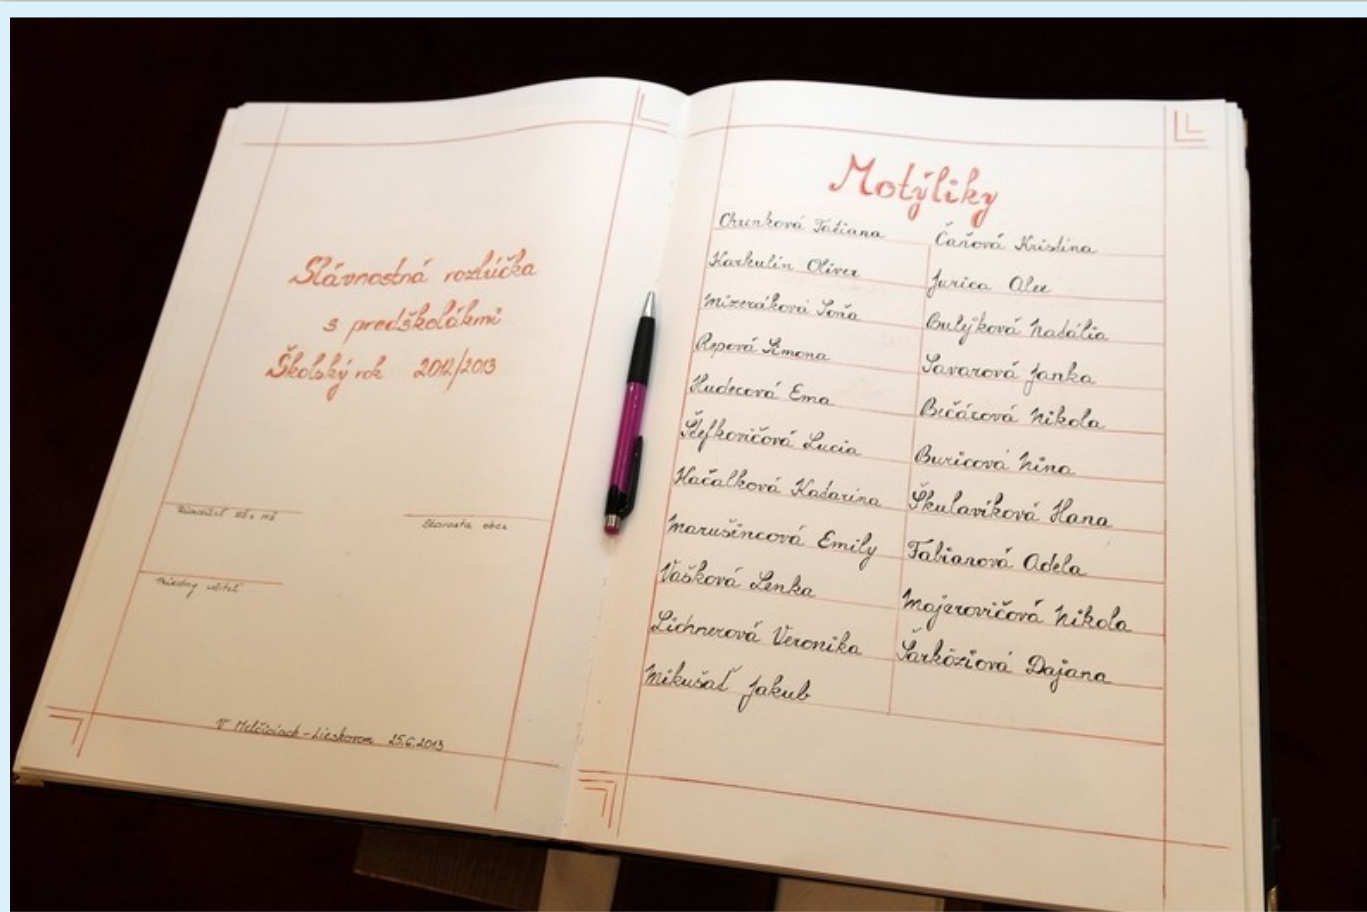 Slávnostná rozlúčka
s predškolákmi
Školský rok 2012/2013
Riaditeľ ZŠ s MŠ
Starosta obce
Triedny učiteľ
V Melčiciach-Lieskovom 25.6.2013
Motýliky
Chrenková Tatiana
Karkulin Oliver
Mizeráková Soňa
Repová Simona
Hudecová Ema
Štefkovičová Lucia
Hačalková Katarína
Marušincová Emily
Vašková Lenka
Lichnerová Veronika
Mikušať Jakub
Čaňová Kristína
Jurica Alex
Bulejková Natália
Savarová Janka
Bičácová Nikola
Buricová Nina
Škulavíková Hana
Fabianová Adela
Majerovičová Nikola
Šarköziová Dajana